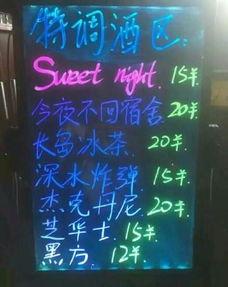 特调酒区:
Sweet night. 15半
今夜不回宿舍 20半
长岛冰茶 20半
深水炸弹 15半
杰克丹尼 20半
芝华士 15半
黑方 12半